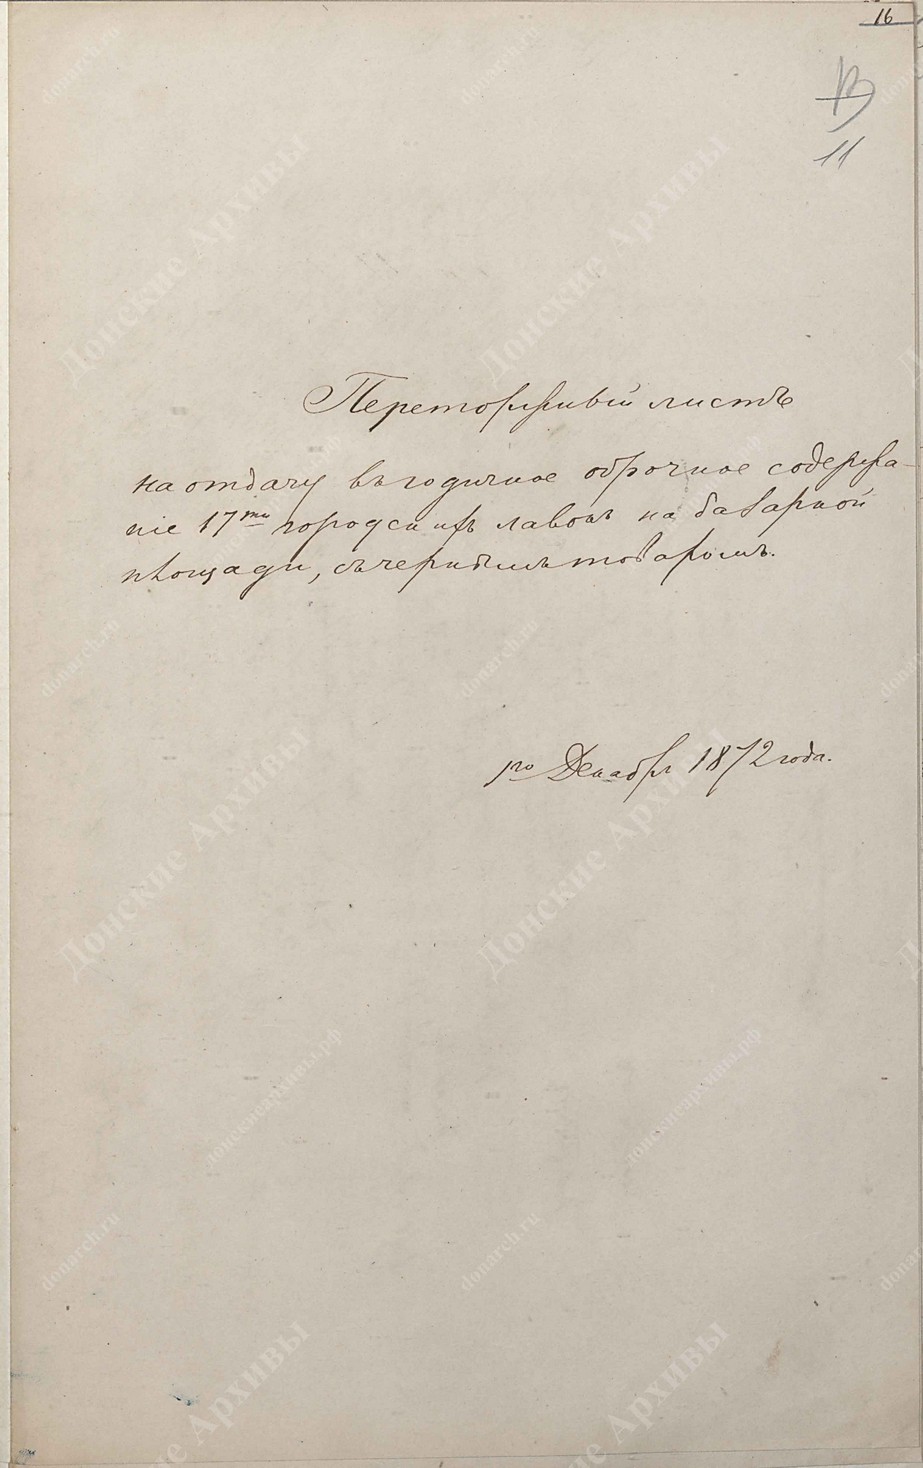 16
11
Переторжный листъ
на отдачу въ годичное оброчное содержа-
ніе 17ти городскихъ лавокъ на базарной
площади, съ чернымъ товаромъ.
1го Декабря 1872 года.